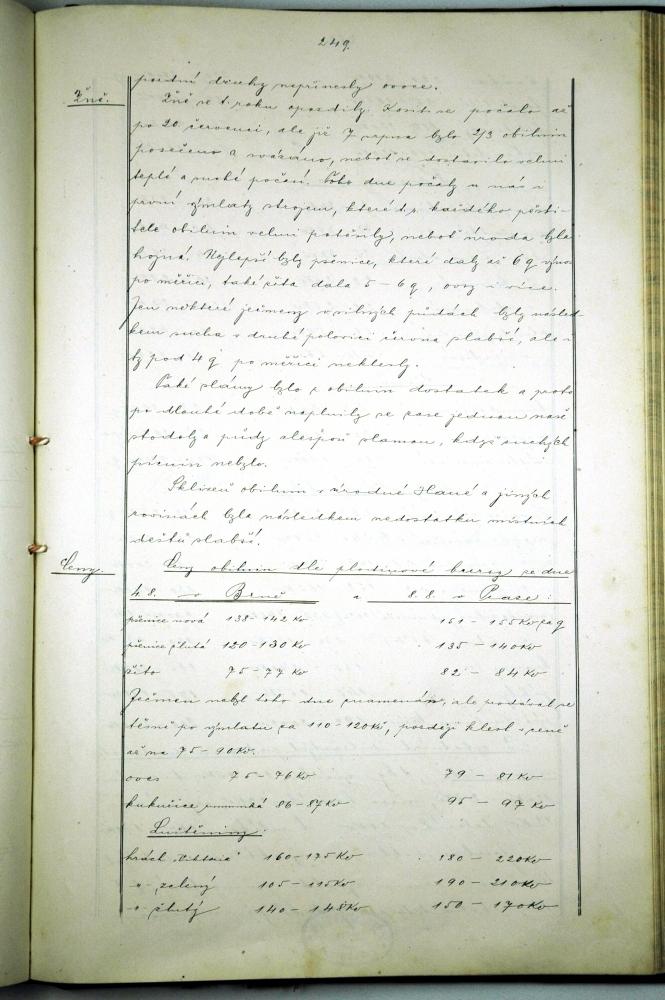 249.
pozdní druhy nepřinesly ovoce.
Žně.
Žně se t. roku opozdily. Kosit se počalo až
po 20. červenci, ale již 7 srpna bylo 2/3 obilnin
posečeno a svázáno, neboť se dostavilo velmi
teplé a suché počasí. Toho dne počaly u nás i
první výmlaty strojem, které t.r. každého pěsti-
tele obilnin velmi potěšily, neboť úroda byla
hojná. Nejlepší byly pšenice, které daly až 6 q výno-
po měřici, také žita dala 5-6 q, ovsy i více.
Jen některé ječmeny v silných půdách byly násled-
kem sucha v druhé polovici června slabší, ale i
ty pod 4 q po měřici neklesly.
Také slámy bylo z obilnin dostatek a proto
po dlouhé době naplnily se zase jednou naše
stodoly a půdy alespoň slamou, když suchých
pícnin nebylo.
Sklizeň obilnin v úrodné Hané a jiných
rovinách byla následkem nedostatku místních
dešťů slabší.
Ceny.
Ceny obilnin dle plodinové bursy ze dne
4.8. v Brně a 8.8. v Praze:
pšenice nová 138-142 Kč 151 - 155 Kč za q
pšenice žlutá 120-130 Kč 135 - 140 Kč
žito 75-77 Kč 82 - 84 Kč
Ječmen nebyl toho dne znamenán, ale prodával se
těsně po výmlatu za 110-120 Kč, později klesl v ceně
až na 75-90 Kč.
oves 75-76 Kč 79 - 81 Kč
kukuřice rumunská 86-87 Kč 95 - 97 Kč
Luštěniny:
hrách "Viktoria" 160-175 Kč 180 - 220 Kč
-"- zelený 105-115 Kč 190 - 210 Kč
-"- žlutý 140-148 Kč 150 - 170 Kč